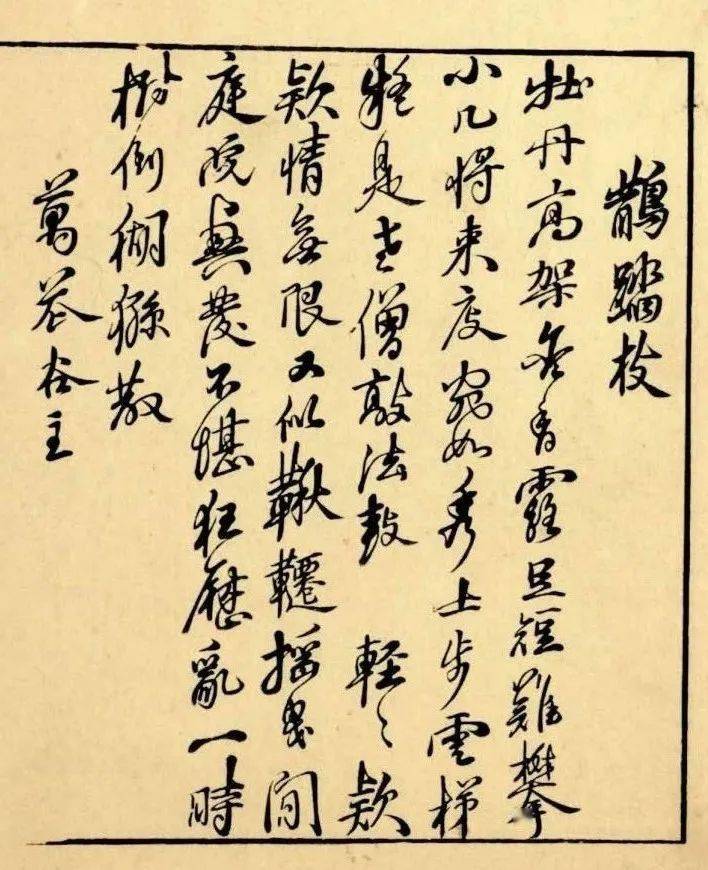 鵲踏枝
牡丹高架含香露足短難攀
小几將来度宛如秀士步雲梯
疑是老僧敲法鼓 輕〻款
款情無限又似鞦韆搖曳閒
庭院興發不堪狂歷亂一時
樹倒猢猻散
萬花谷主